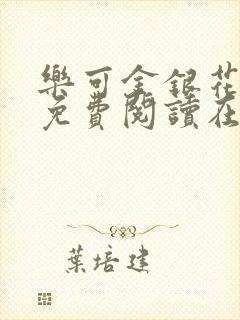 樂可金銀花
免費閱讀在
葉培建